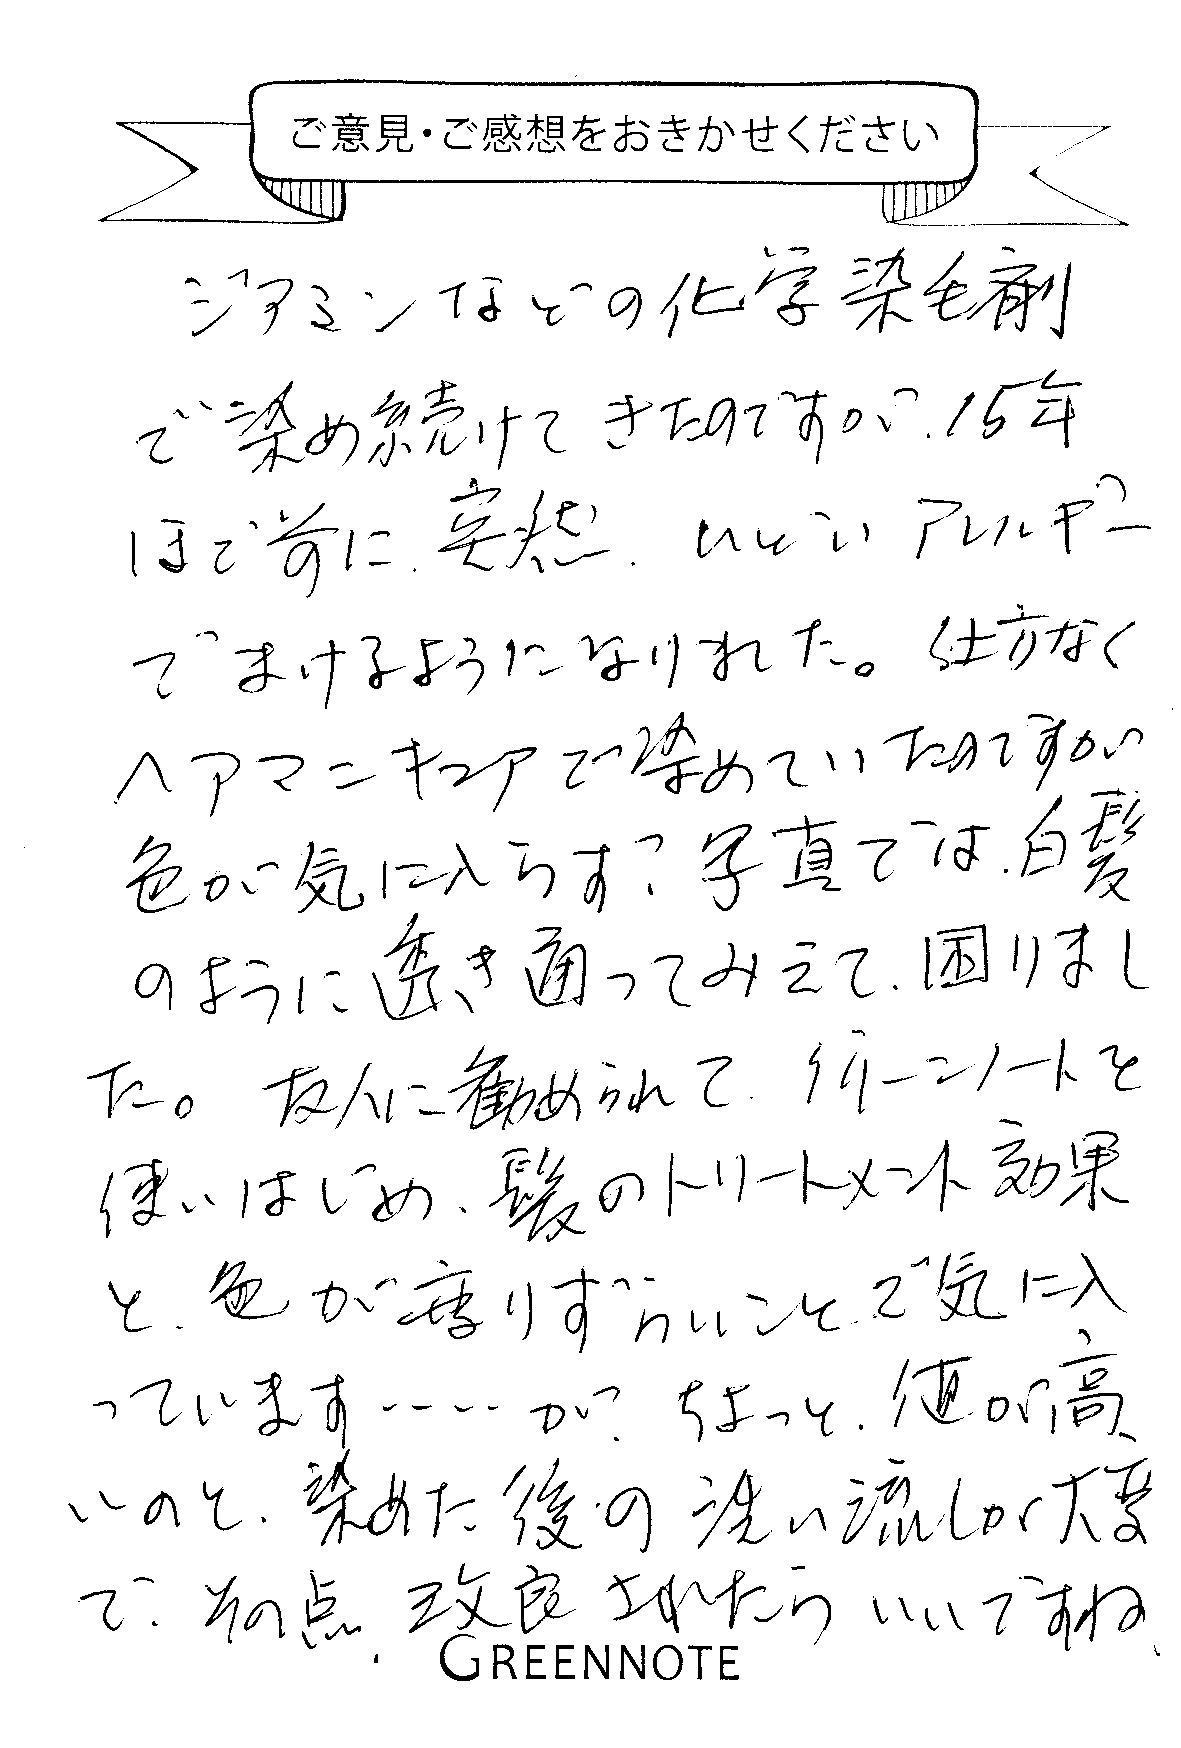 ご意見・ご感想をおきかせください
ジアミンなどの化学染毛剤
で染め続けてきたのですが、15年
ほど前に、突然、ひどいアレルギー
でまけるようになりました。仕方なく
ヘアマニキュアで染めていたのですが
色が気に入らず、写真では、白髪
のように透き通ってみえて、困りまし
た。友人に勧められて、グリーンノートを
使いはじめ、髪のトリートメント効果
と、色が落りずらいこと、で気に入
っています‥‥が、ちょっと、値が高
いのと、染めた後の洗い流しが大変
で、その点、改良されたらいいですね、
GREENNOTE